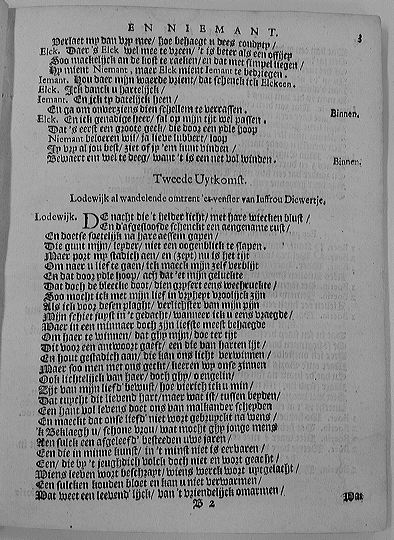 EN NIEMANT. 3
Verlaet my dan vry mee / hoe behaegt u dees conditij /
Elck. Daer's Elck wel mee te vreen / 't is beter als een offitij
Soo mackelijck an de kost te raeken / en dat met simpel liegen /
Hy mient Niemant, maer Elck mient Iemant te bedriegen.
Iemant. Hou daer mijn waerde vrient / dat schenck ick Elckeen.
Elck. Ick danck u hartelijck /
Iemant. En ick ty datelijck heen /
En ga om onverziens dien schellem te verrassen. Binnen.
Elck. En ick genadige heer / sal op mijn tijt wel passen.
Dat's eerst een groote geck / die door een ydle hoop
Niemant beloeren wil / ja lieve lubbert / loop
Jy vry al jou best / ziet of jy 'em kunt vinden /
Bewaert em wel te deeg / want 't is een net vol winden. Binnen.
Tweede Uytkomst.
Lodewijk al wandelende omtrent 't venster van Iuffrou Diewertje.
Lodewijk. DE nacht die 't helder licht / met hare wiecken blust /
En d'afgesloofde schenckt een aengename rust /
En doetse soetelijck na hare aessem gapen /
Die gunt mijn / leyder / niet een oogenblick te slapen.
Maer port my stadich aen / en (zeyt) nu is het tijt
Om naer u lief te gaen / ick maeck mijn zelf verblijt
En dat door ydle hoop / ach dat 'et mijn geluckte
Dat doch de bleecke doot / dien gryssert eens wechruckte /
Soo mocht ick met mijn lief in vryheyt vroolijck zijn
Als ick voor desen plagt / verlichster van mijn pijn
Mijn schiet supst in 't gedacht / wanneer ick u eens vraegde /
Waer in een minnaer doch zijn liefste meest behaegde
Om haer te winnen / dat ghy mijn / doe ter tijt
Dit voor een antwoort gaeft / een die van harten lijt /
En hout gestadich aan / die kan ons licht verwinnen /
Maer soo men met ons geckt / keeren wy ons zinnen
Ook lichtelijck van haer / doch ghy / o engelin /
Zijt van mijn liefd' bewust / hoe vierich ick u min /
Dat tuycht dit lievend hart / maer wat ist / tussen beyden
Een hant vol levens doet ons van malkander scheyden
En maeckt dat onse liefd' niet wort gebruyckt na wens /
'k Beklaegh u / schone vrou / wat mocht ghy jonge mens
Aen sulck een afgeleefd' besteeden uwe jaren /
Een die in minne kunst / in 't minst niet is ervaren /
Een / die by 't jeughdich volck doch niet en wort geacht /
Wiens leeven wort beschrayt / wiens werck wort uytgelacht /
Een sulcken kouden bloet en kan u niet verwarmen /
Wat weet een leevend' lijck / van 't vriendelijck omarmen /
B 2 Wat